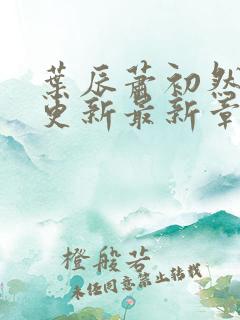 葉辰蕭初然
更新最新章
橙般若
未经同意禁止转载